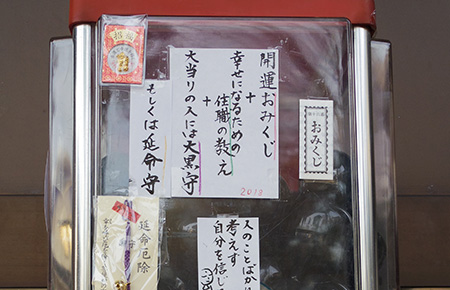 開運おみくじ
+
幸せになるための
住職の教え
+
大当りの人には大黒守
もしくは延命守
2018
おみくじ
招福
延命厄除
人のことばかり
考えず
自分を信じ